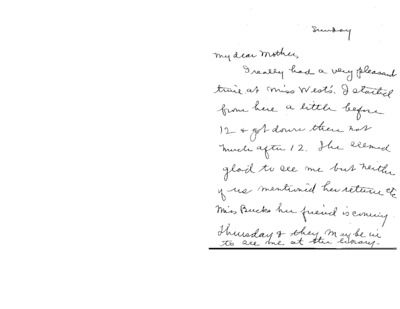 Sunday
My dear Mother,
I really had a very pleasant
time at Miss West's. I started
from here a little before
12 & got down there not
much after 12. She seemed
glad to see me but neither
of us mentioned her return etc
Miss Bucks her friend is coming
Thursday & they may be in
to see me at the library.